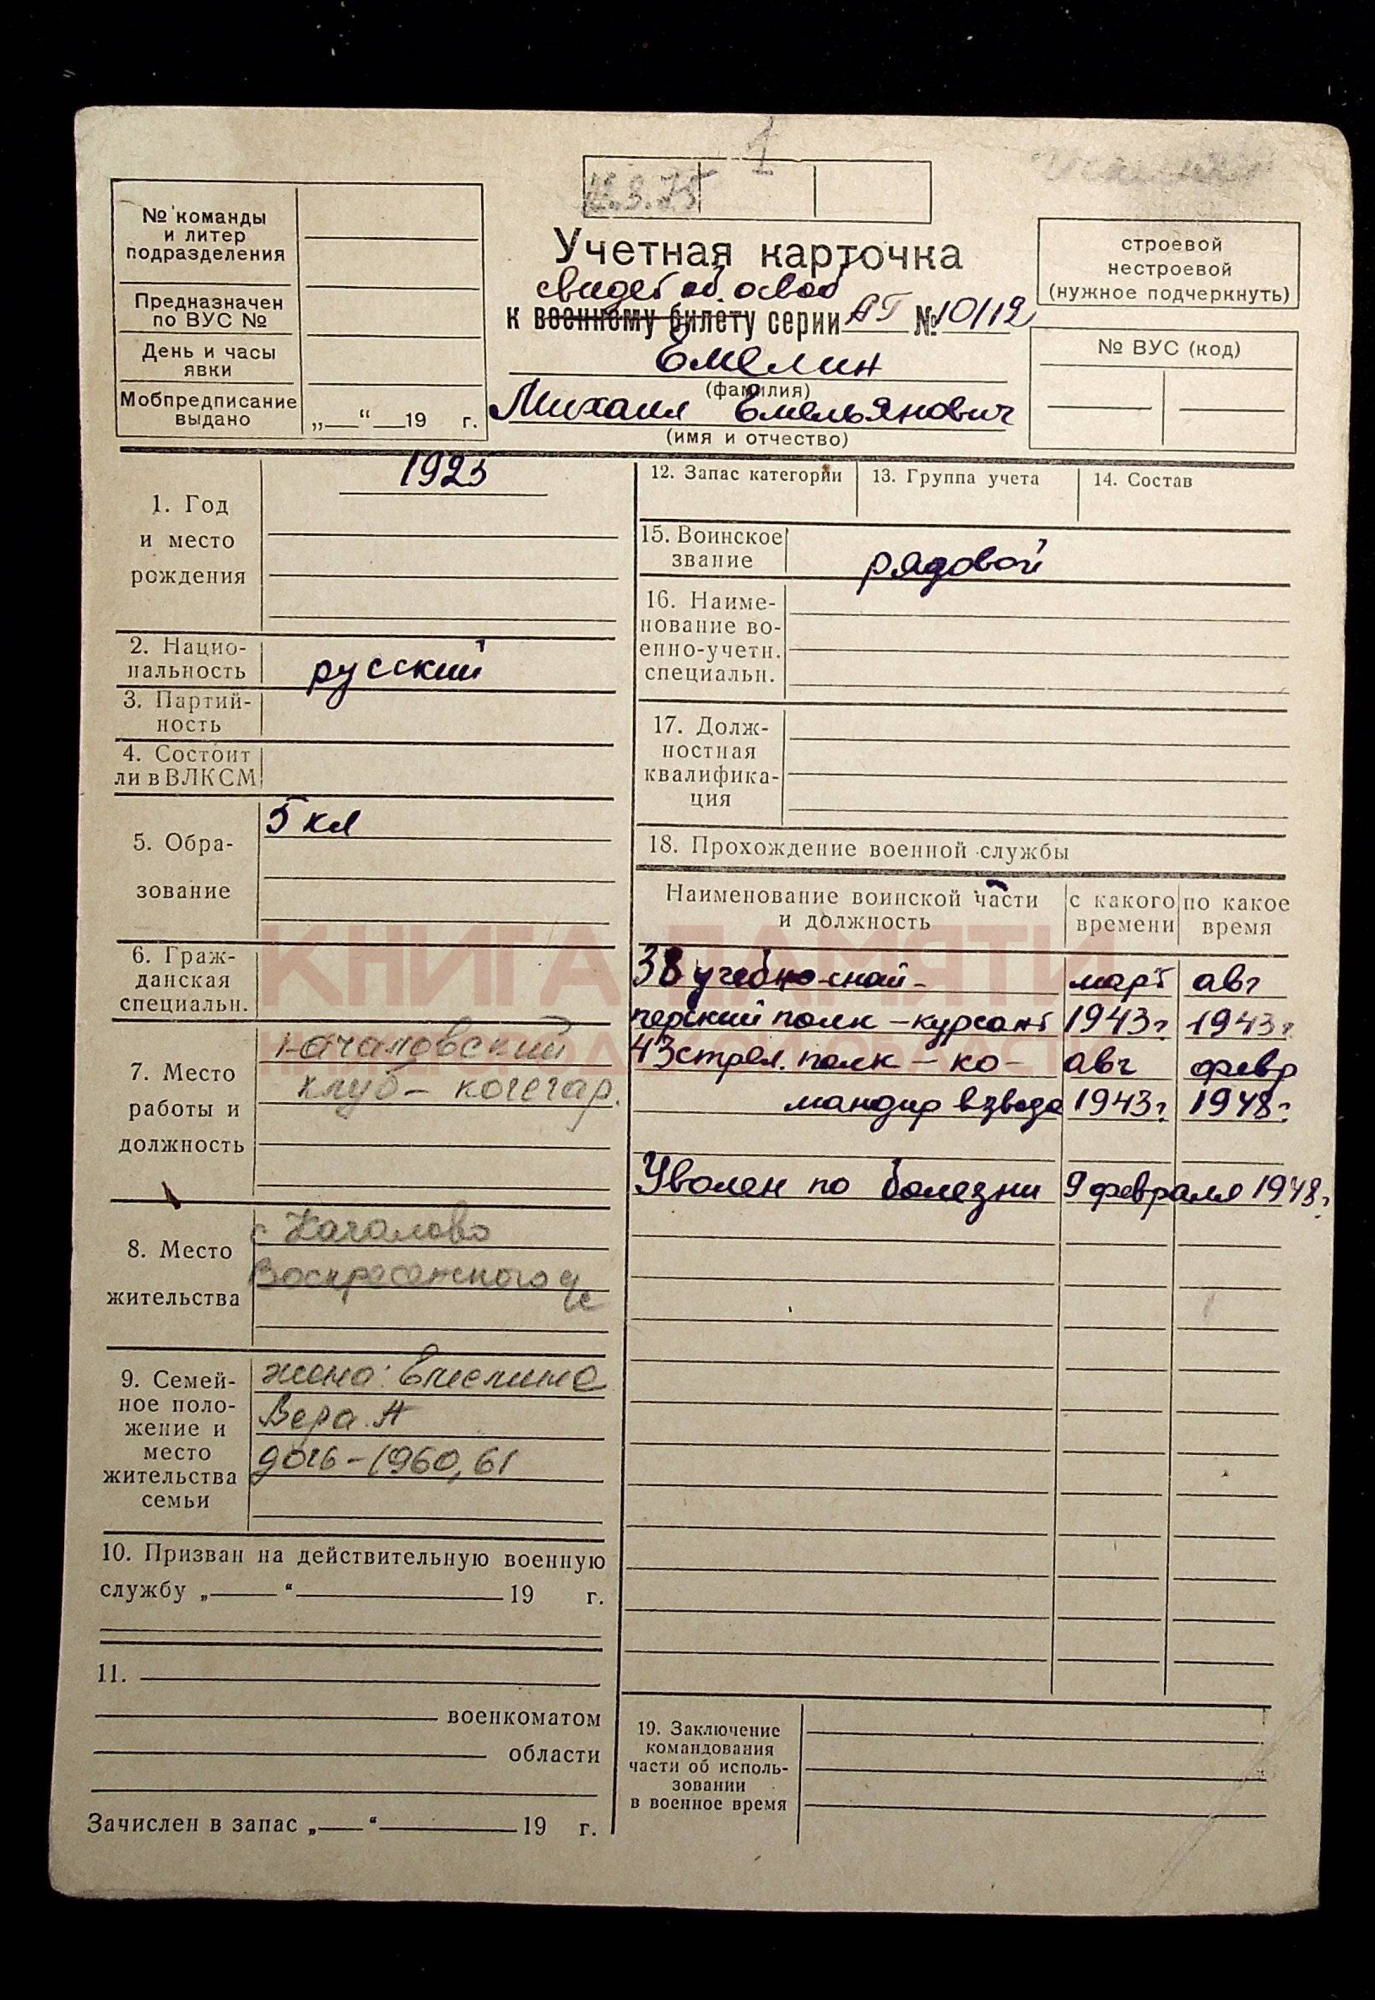 1
12.3.75
№ команды
и литер
подразделения
Предназначен
по ВУС №
День и часы
явки
Мобпредписание
выдано
„ “ 19 г.
Учетная карточка
свидет об. освоб
к военному билету серии АГ № 10/12
Емелин
(фамилия)
Михаил Емельянович
(имя и отчество)
строевой
нестроевой
(нужное подчеркнуть)
№ ВУС (код)
1. Год
и место
рождения
1925
2. Нацио-
нальность
русский
3. Партий-
ность
4. Состоит
ли в ВЛКСМ
5. Обра-
зование
5 кл
6. Граж-
данская
специальн.
7. Место
работы и
должность
Качаловский
клуб – кочегар.
8. Место
жительства
с. Качалово
Воскресенского
9. Семей-
ное поло-
жение и
место
жительства
семьи
жена: Емелина
Вера. А
дочь – 1960, 61
10. Призван на действительную военную
службу „ “ 19 г.
11.
военкоматом
области
Зачислен в запас „ “ 19 г.
12. Запас категории
13. Группа учета
14. Состав
15. Воинское
звание
рядовой
16. Наиме-
нование во-
енно-учетн.
специальн.
17. Долж-
ностная
квалифика-
ция
18. Прохождение военной службы
Наименование воинской части
и должность
с какого
времени
по какое
время
38 учебно-снай- март авг
перский полк – курсант 1943 г 1943 г
43 стрел. полк – ко- авг февр
мандир взвода 1943 г. 1948 г
Уволен по болезни 9 февраля 1948 г.
19. Заключение
командования
части об исполь-
зовании
в военное время
КНИГА ПАМЯТИ
НИЖЕГОРОДСКОЙ ОБЛАСТИ